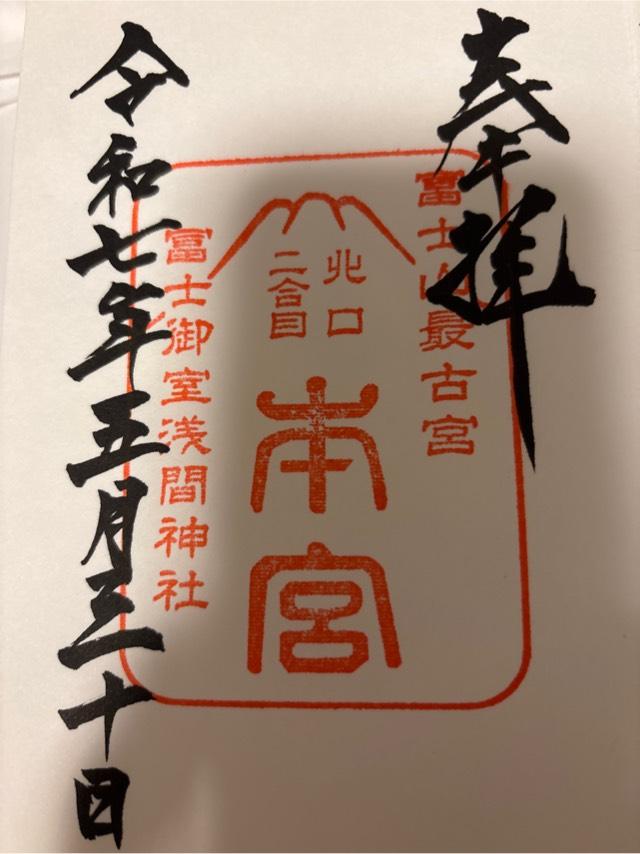 奉拝
富士山最古宮
北口
二合目
本宮
富士御室浅間神社
令和七年五月三十日